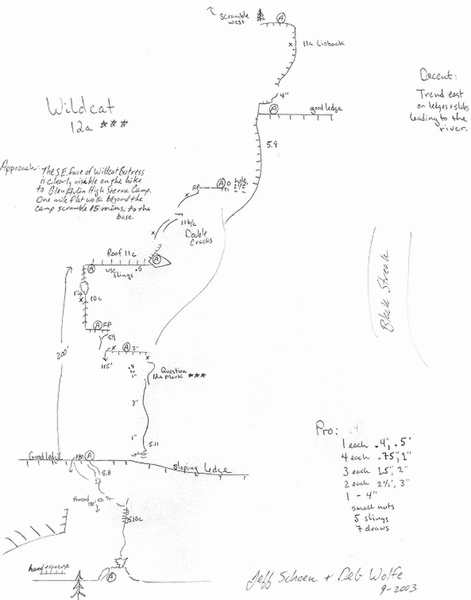 Scramble
west
A
11a Lieback
4"
A
good ledge
Decent:
Trend east
on ledges + slabs
leading to the
river.
Wildcat
12a ***
5.9
Approach: The SE face of Wildcat Butress
is clearly visible on the hike
to Glen Aulin High Sierra Camp.
One mile flat walk beyond the
camp scramble 15 mins. to the
base.
A
hole
2 1/2"
11 b/c
Double
Cracks
Roof 11c
A
use .5
slings
A
10c
A FP
5.9
200'
A 2"
115'
.4
1"
Question
Mark ***
2"
1"
5.11
Black Streak
Good ledge
A
sloping ledge
5.8
thread
5.10c
A
Pro:
1 each .4", .5"
4 each .75", 1"
3 each 1.5", 2"
2 each 2 1/2", 3"
1 - 4"
small nuts
5 slings
7 draws
Jeff Schoen + Deb Wolfe
9-2003